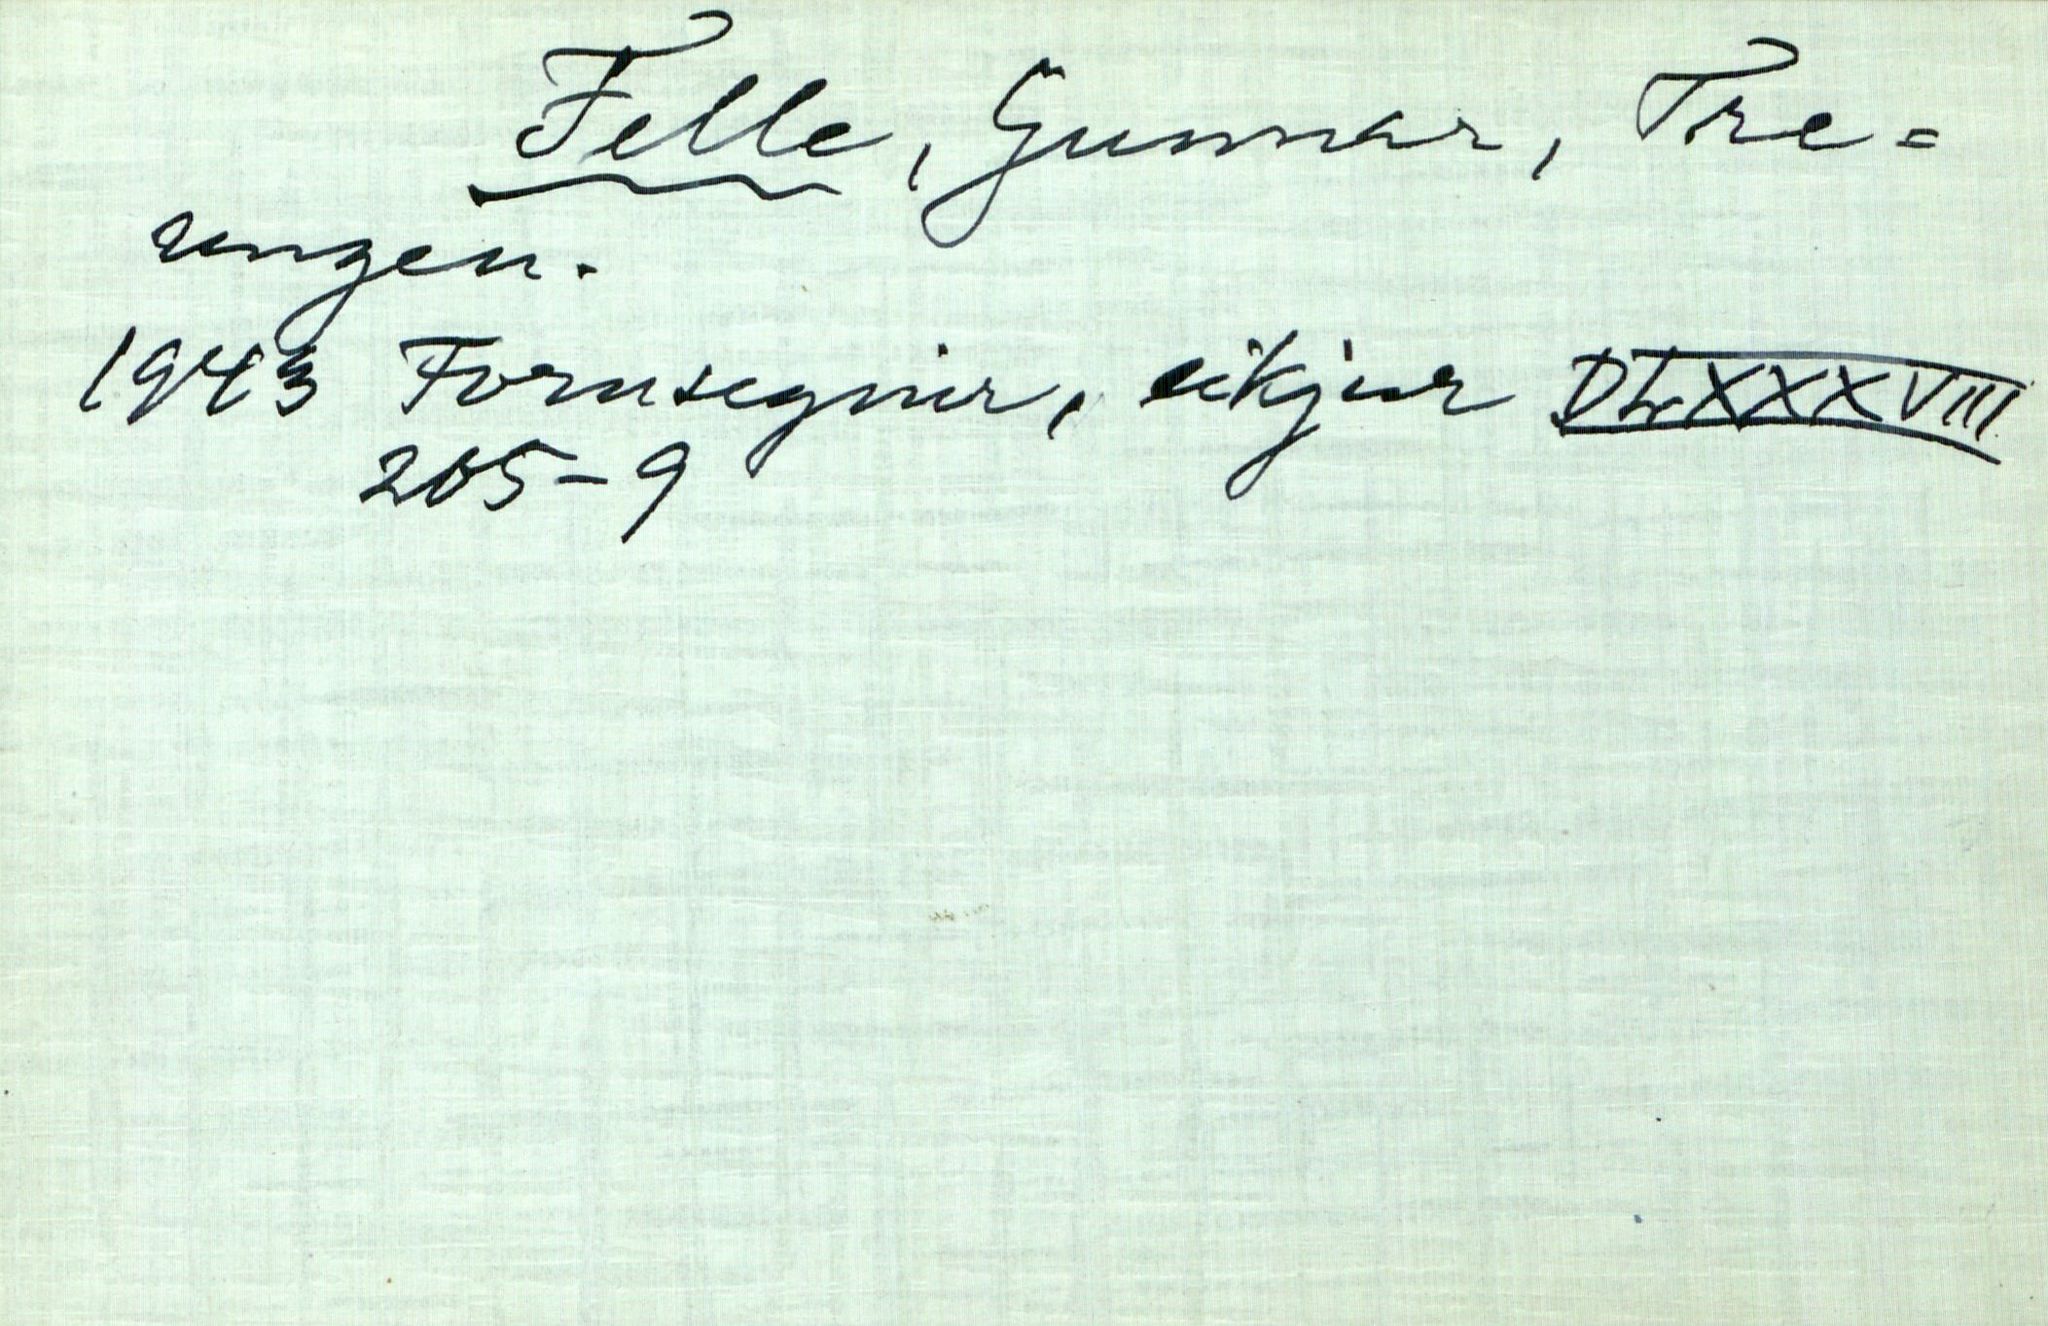 Felle, Gunnar, Tre=
ungen.
1943 Fornsegnir, eikjur DLXXXVIII
265-9